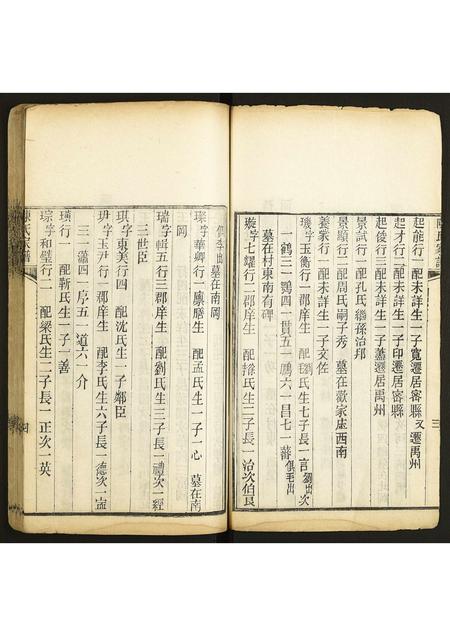 陳氏家譜
三
起能行一配未詳生一子寬遷居密縣又遷禹州
起才行一配未詳生一子印遷居密縣
起俊行三配未詳生一子蕙遷居禹州
景試行一配孔氏繼孫治邦
景顯行二配周氏嗣子秀 墓在薇家庄西南
養蒙行一配未詳生一子文佐
璣字玉衡行一郡庠生 配劉氏生七子長一言劉出次
一鶴三一鶚四一貫五一鵬六一昌七一蕃俱毛出
墓在村東南有碑
璇字七耀行二郡庠生 配徐氏生二子長一治次伯良
俱李出墓在南岡
璨字華卿行一廩膳生 配孟氏生一子一心 墓在南
岡
瑞字輯五行三郡庠生 配劉氏生三子長一禮次一經
三世臣
琪字東美行四 配沈氏生一子鄰臣
玥字玉尹行一郡庠生 配李氏生六子長一德次一盂
三一藩四一序五一道六一介
璜行一 配靳氏生一子一善
琮字和璧行二 配梁氏生二子長一正次一英
陳氏家譜